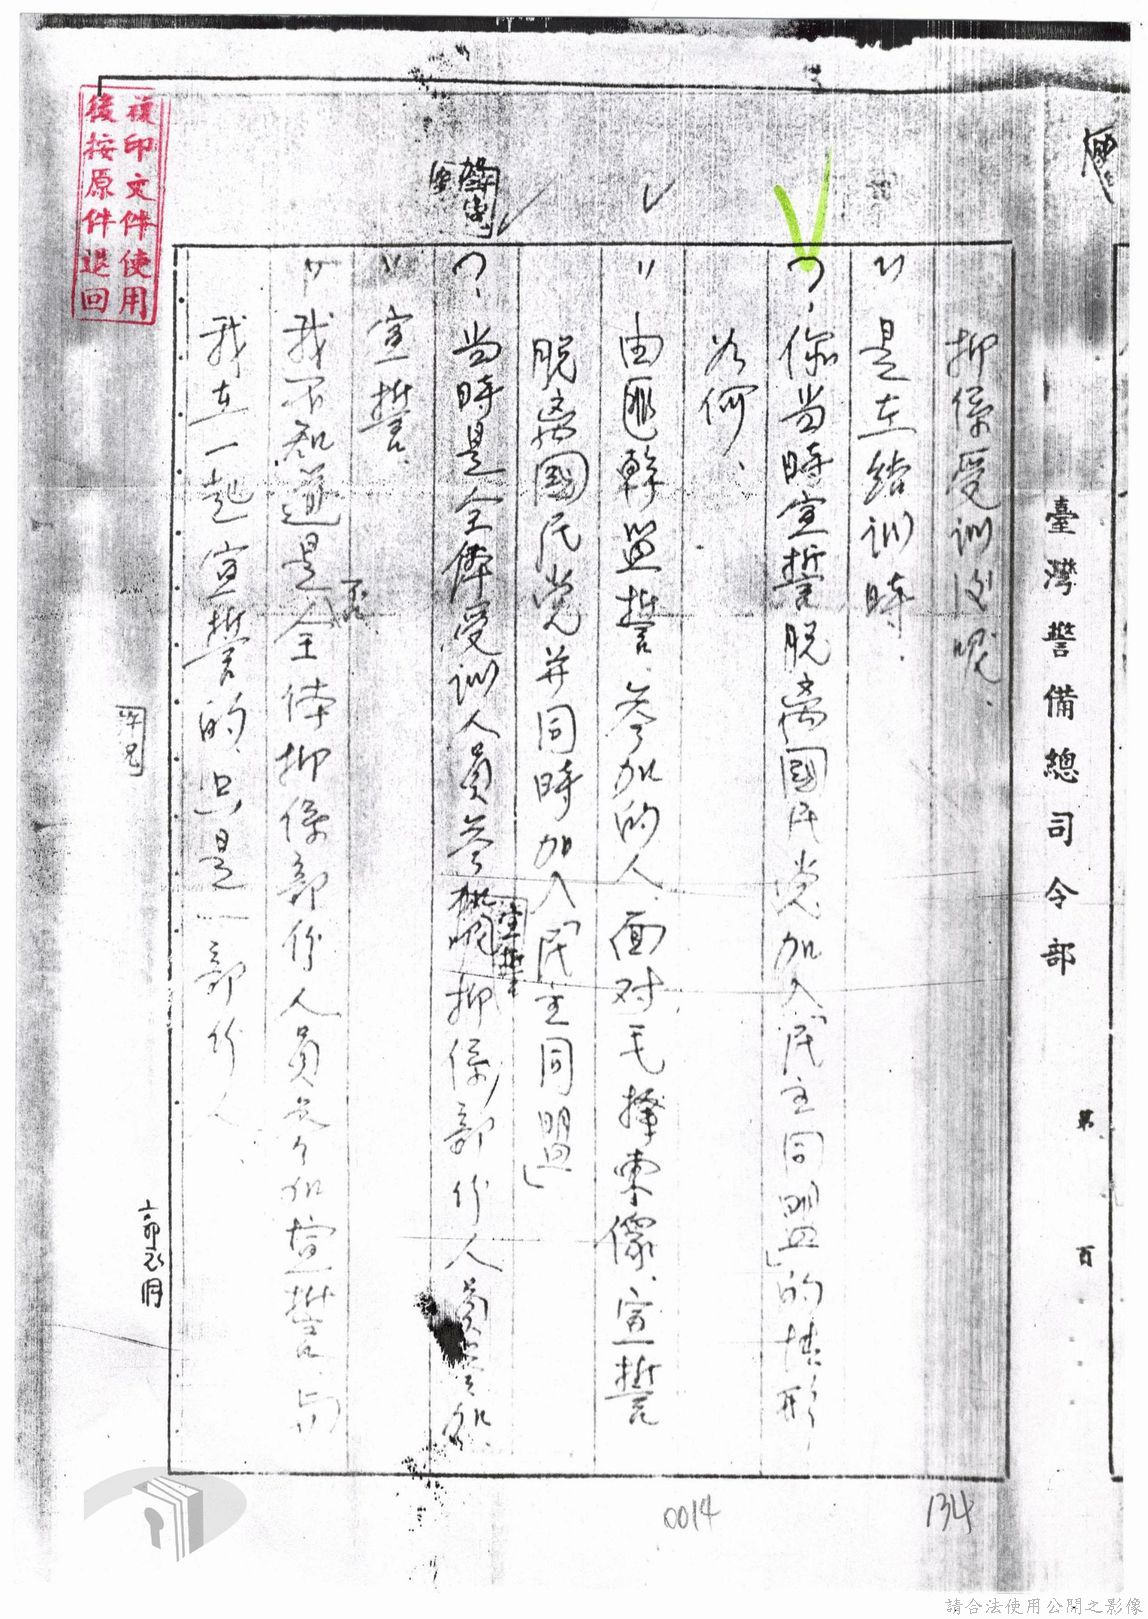 臺灣警備總司令部
第 頁
抑係受訓後呢、
〃是在結訓時.
?、你当時宣誓脫离國民党加入「民主同盟」的情形
為何、
〃由匪幹監誓、參加的人、面对毛擇東像、宣誓
脫离國民党并同時加入「民主同盟」
?、当時是全体受訓人員參加宣誓呢抑係部份人員參加
宣誓、
〃我不知道是不是全体抑係部份人員參加宣誓、而
我在一起宣誓的、只是一部份人、
複印文件使用
後按原件退回
0014
134
請合法使用公開之影像